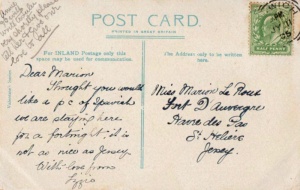 POST CARD.
PRINTED IN GREAT BRITAIN
For INLAND Postage only this space may be used for communication.
The address to be written here.
HALF PENNY
Dear Marion
Thought you would
like a p c of Ipswich
we are staying here
for a fortnight it is
not as nice as Jersey
With love from
Miss Marion Le
Fort D'Auvergne
Havre des Pas
St Heliers
Jersey.